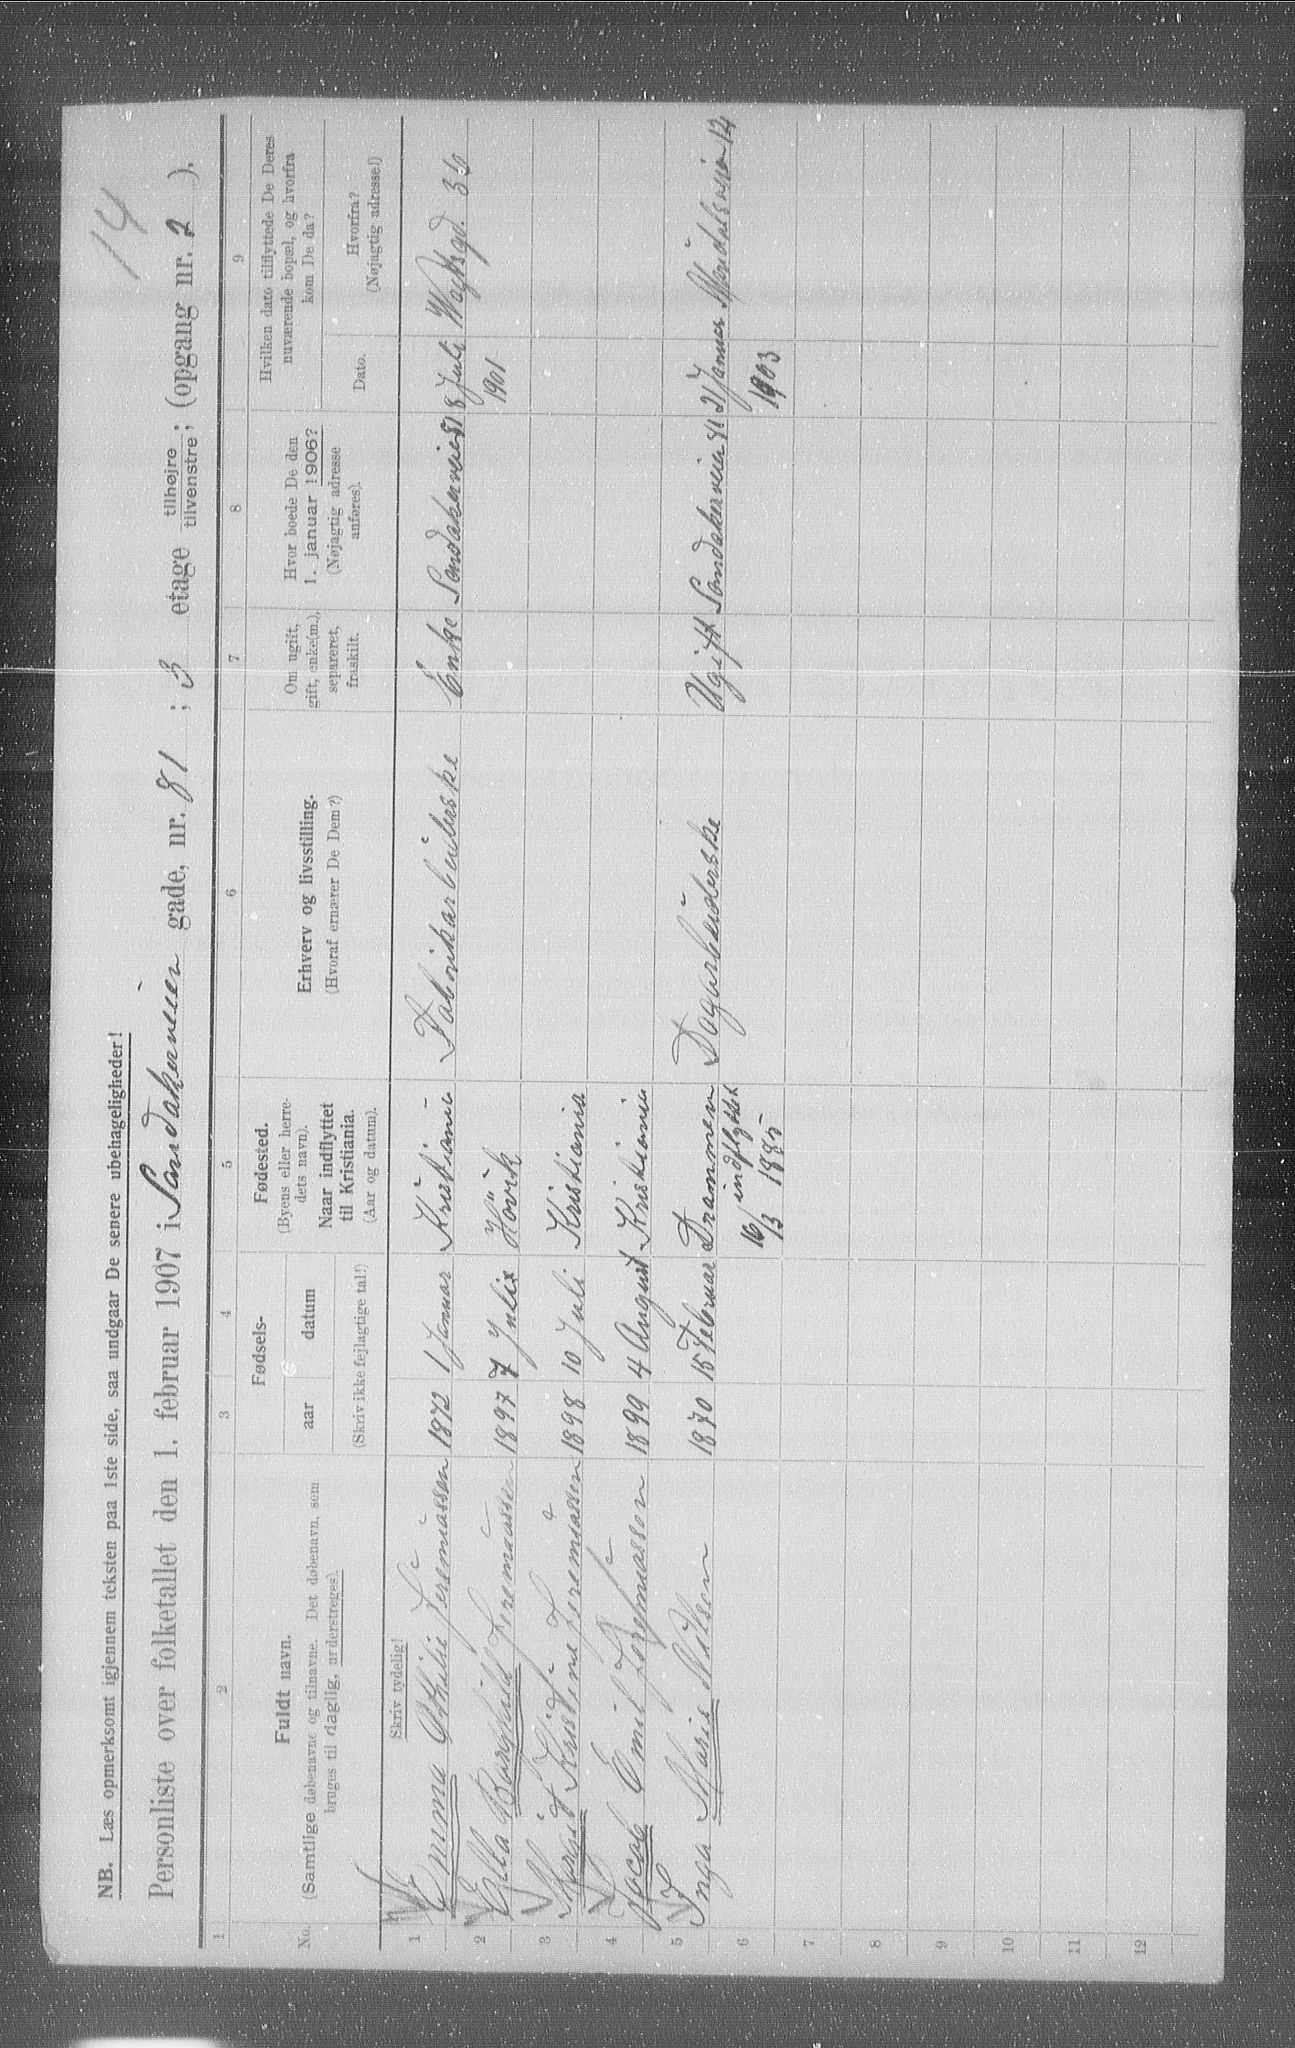 14
NB. Læs opmerksomt igjennem teksten paa 1ste side, saa undgaar De senere ubehageligheder!
Personliste over folketallet den 1. februar 1907 i Sandakerveien gade, nr. 81 ; 3 etage tilhøjre tilvenstre; (opgang nr. 2 ).
1 2 3 4 5 6 7 8 9
No.
Fuldt navn.
(Samtlige døbenavne og tilnavne. Det døbenavn, som
bruges til daglig, understreges).
Fødsels-
aar datum
(Skriv ikke fejlagtige tal!)
Fødested.
(Byens eller herre-
dets navn).
Naar indflyttet
til Kristiania.
(Aar og datum).
Erhverv og livsstilling.
(Hvoraf ernærer De Dem?)
Om ugift,
gift, enke(m.),
separeret,
fraskilt.
Hvor boede De den
1. januar 1906?
(Nøjagtig adresse
anføres).
Hvilken dato tilflyttede De Deres
nuværende bopæl, og hvorfra
kom De da?
Dato.
Hvorfra?
(Nøjagtig adresse!)
Skriv tydelig!
1 Emma Othilie Jeremiassen 1872 1 Januar Kristiania Fabrikarbeiderske Enke Sandakerveien 81 8 Juli 1901 36
2 Ella Borghild Jeremiassen 1897 7 Høvik
3 Margit Kristine Jeremiassen 1898 10 Juli Kristiania
4 Jacob Emil Jeremiassen 1899 4 August Kristiania
5 Inga Marie Nilsen 1870 15 Februar Drammen Dagarbeiderske Ugift Sandakerveien 81 21 Januar 12
indflyttet
16/3 1885
1903
6
7
8
9
10
11
12